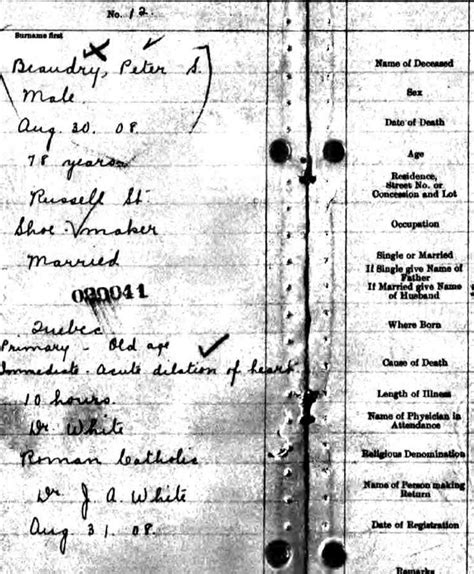 No. 12.
Surname first
Beaudry, Peter S.
Male
Aug. 30. 08.
78 years
Russell St.
Shoe maker
Married
030041
Quebec
Primary - Old age
Immediate - Acute dilation of heart
10 hours.
Dr. White
Roman Catholic
Dr J. A. White
Aug 31 08.
Name of Deceased
Sex
Date of Death
Age
Residence,
Street No. or
Concession and Lot
Occupation
Single or Married
If Single give Name of
Father
If Married give Name
of Husband
Where Born
Cause of Death
Length of Illness
Name of Physician in
Attendance
Religious Denomination
Name of Person making
Return
Date of Registration
Remarks